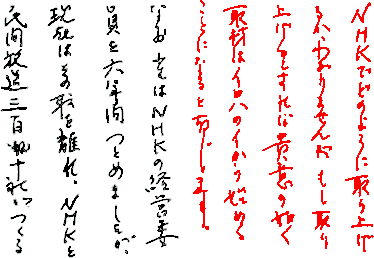 NHKでどのように取り上げ
るかわかりませんが もし取り
上げるとすれば 貴意の如く
取材はイロハのイから始める
ことになると存じます。
なお 小生はNHKの経営委
員を六年間つとめましたが、
現在はその職を離れ、NHKと
民間放送三百数十社がつくる